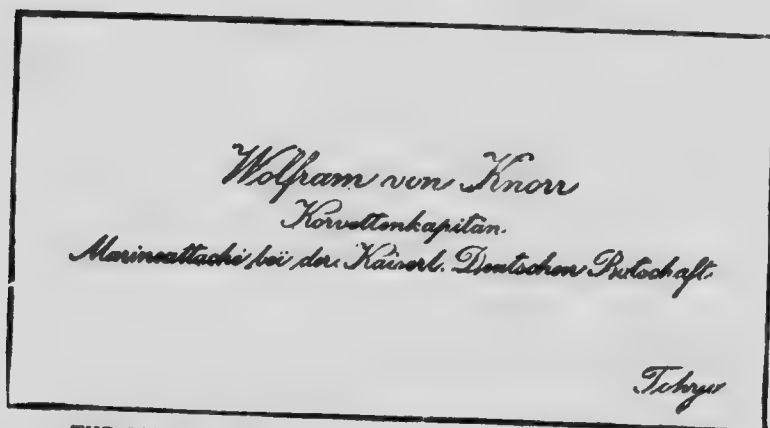 Wolfram von Knorr
Korvettenkapitän.
Marineattaché bei der Kaiserl. Deutschen Botschaft.
Tokyo
THE